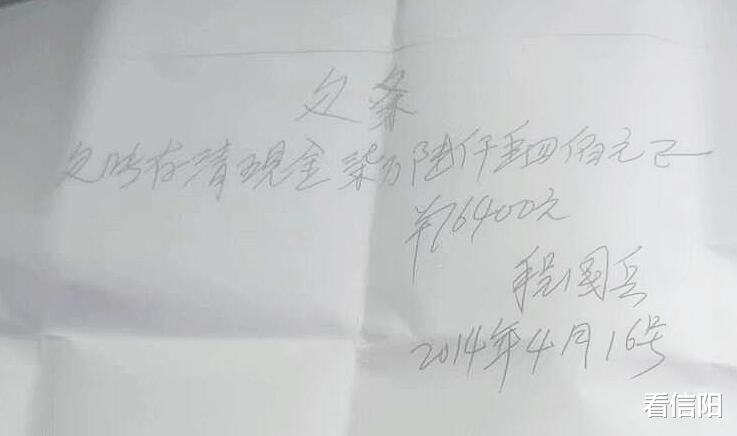 欠条
欠陈存清现金柒万陆仟零四佰元正
￥76400元
程国兵
2014年4月16号
看信阳